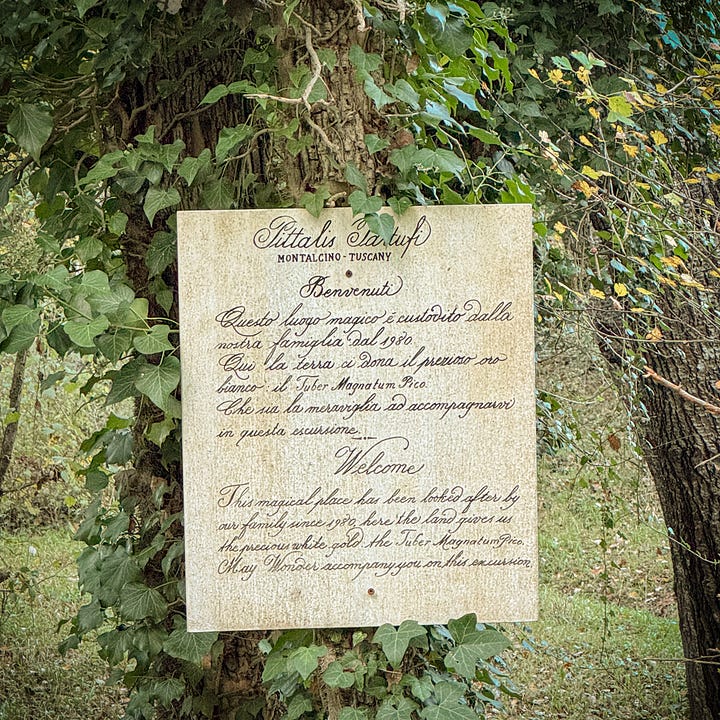 Pittalis Tartufi
MONTALCINO - TUSCANY
Benvenuti
Questo luogo magico é custodito dalla
nostra famiglia dal 1980.
Qui la terra ci dona il prezioso oro
bianco: il Tuber Magnatum Pico.
Che sia la meraviglia ad accompagnarvi
in questa escursione.
Welcome
This magical place has been looked after by
our family since 1980, here the land gives us
the precious white gold, the Tuber Magnatum Pico.
May Wonder accompany you on this excursion.